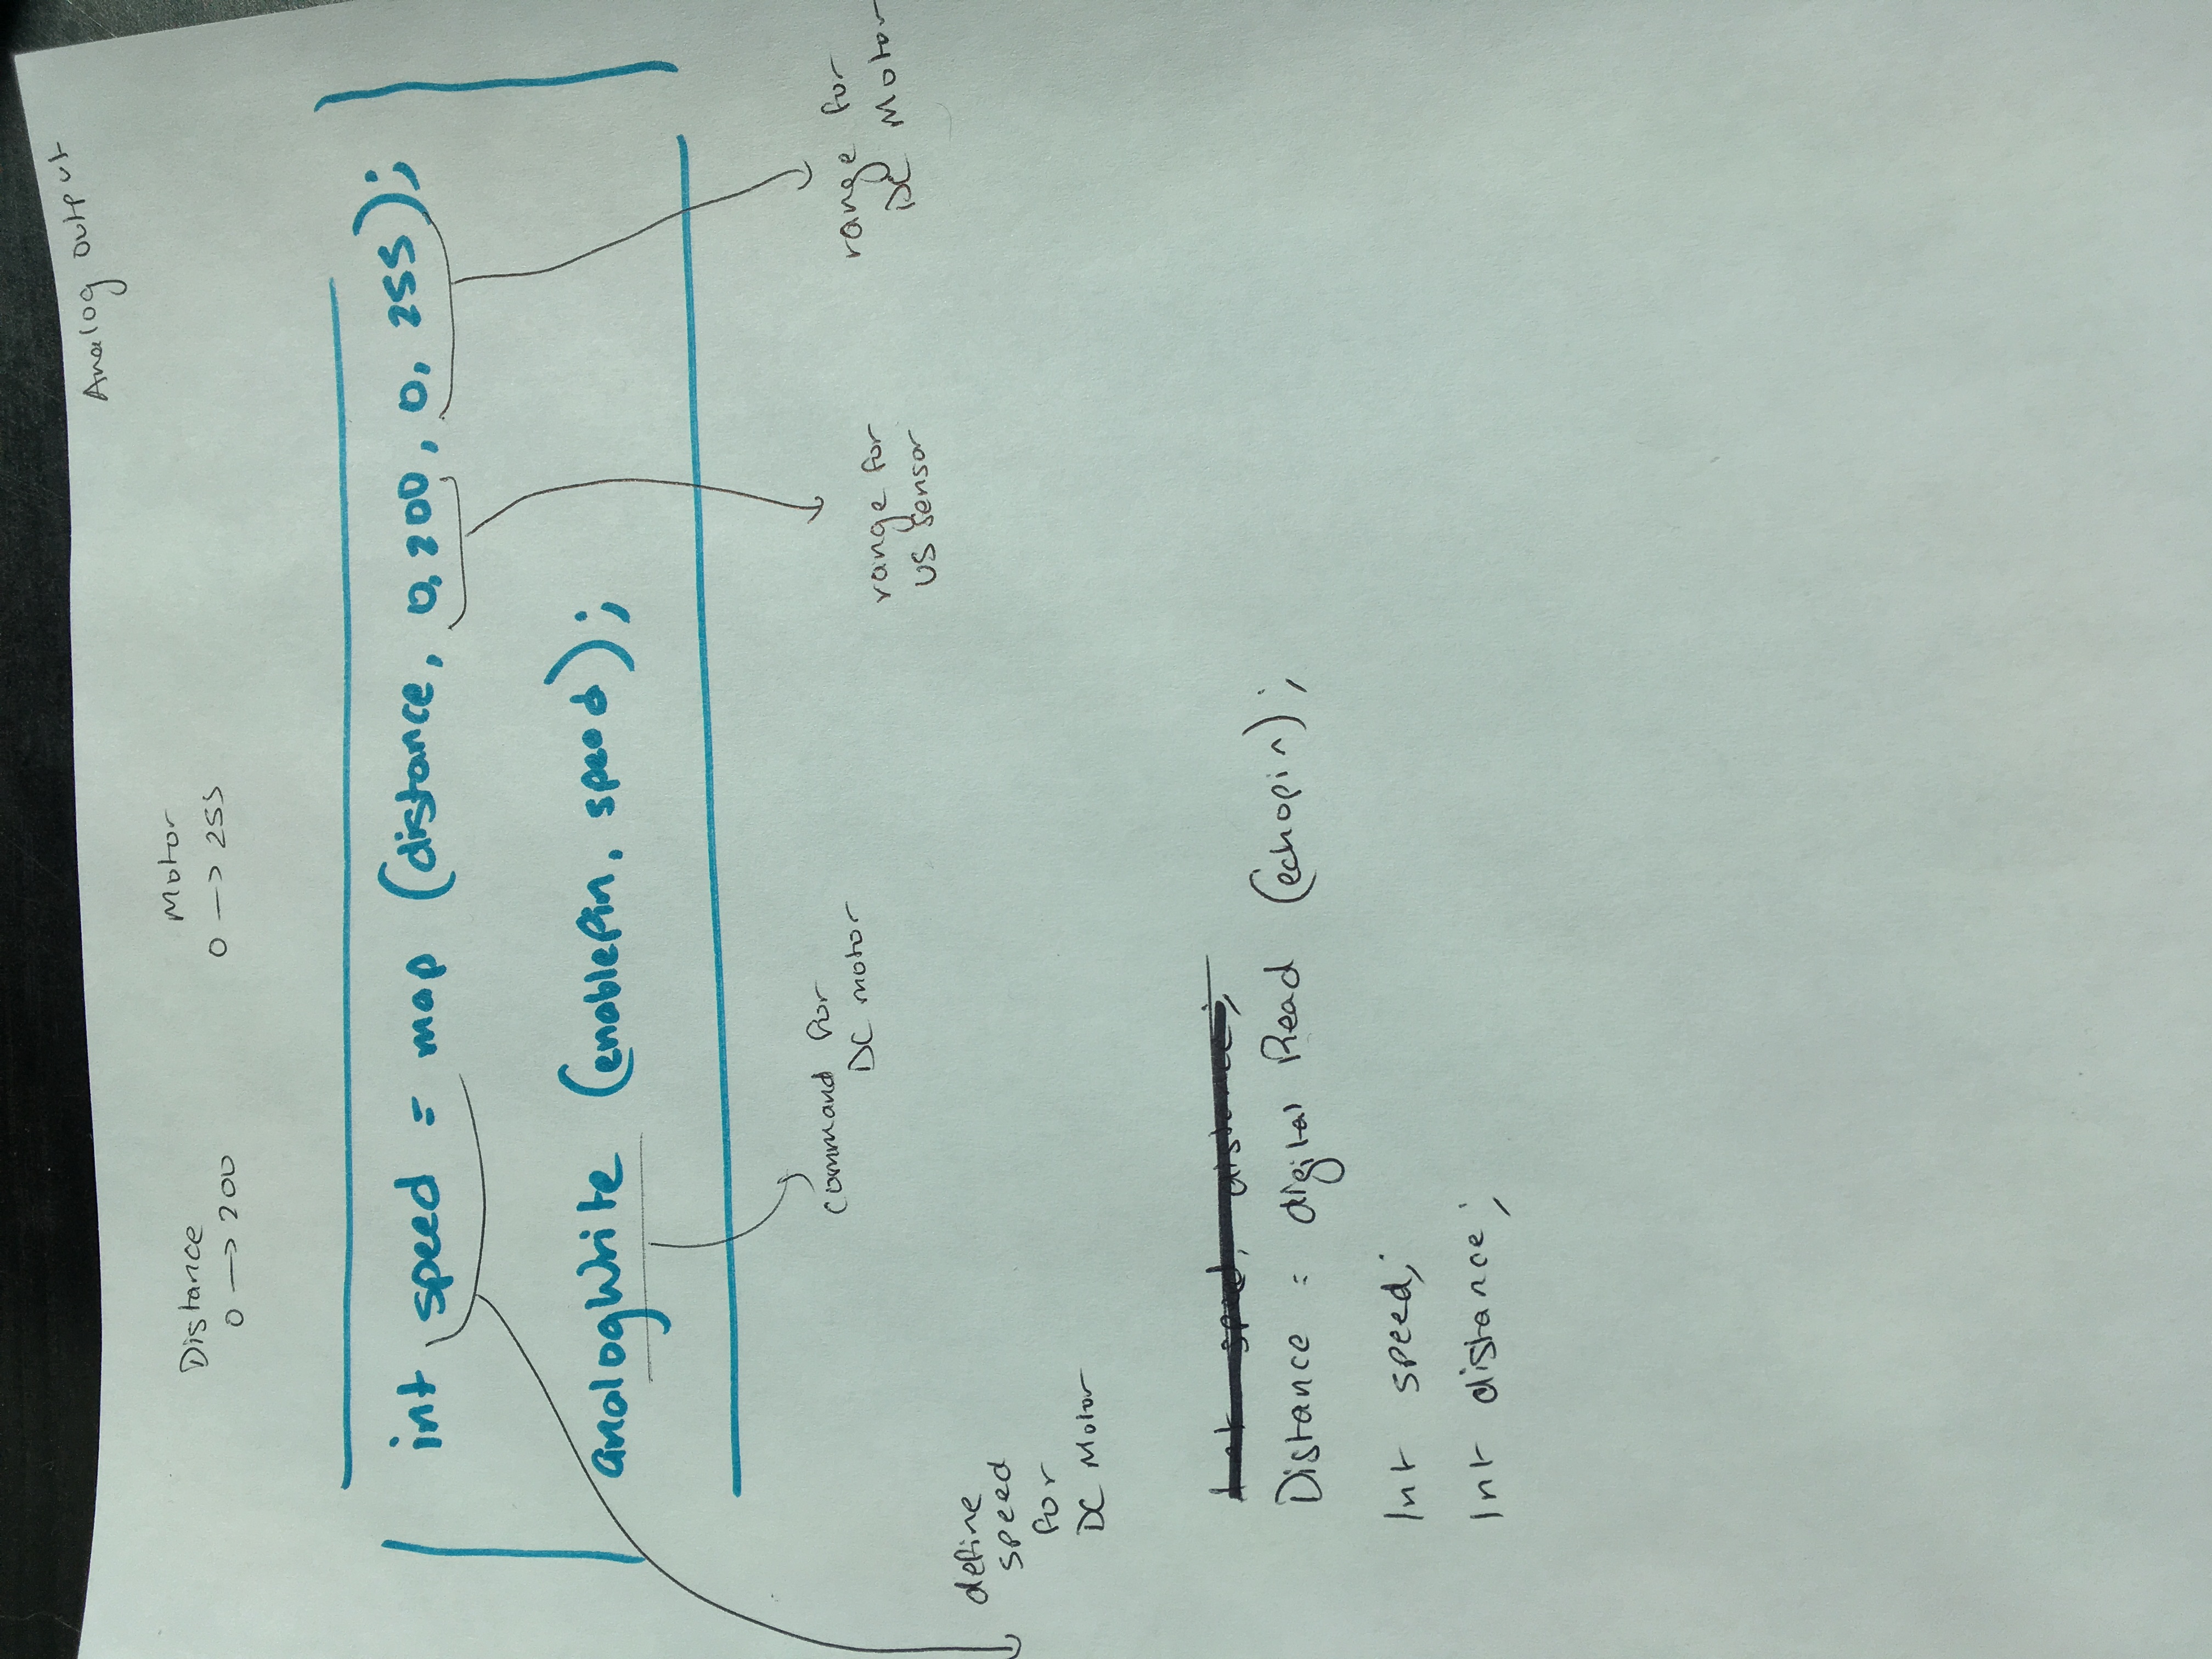 Analog output
Distance
0 → 200
Motor
0 → 255
int speed = map (distance, 0, 200, 0, 255);
analogWrite (enablePin, speed);
command for
DC motor
range for
US sensor
range for
DC Motor
define
speed
for
DC Motor
Int sped, distance;
Distance = digital Read (echopin);
Int speed;
Int distance;